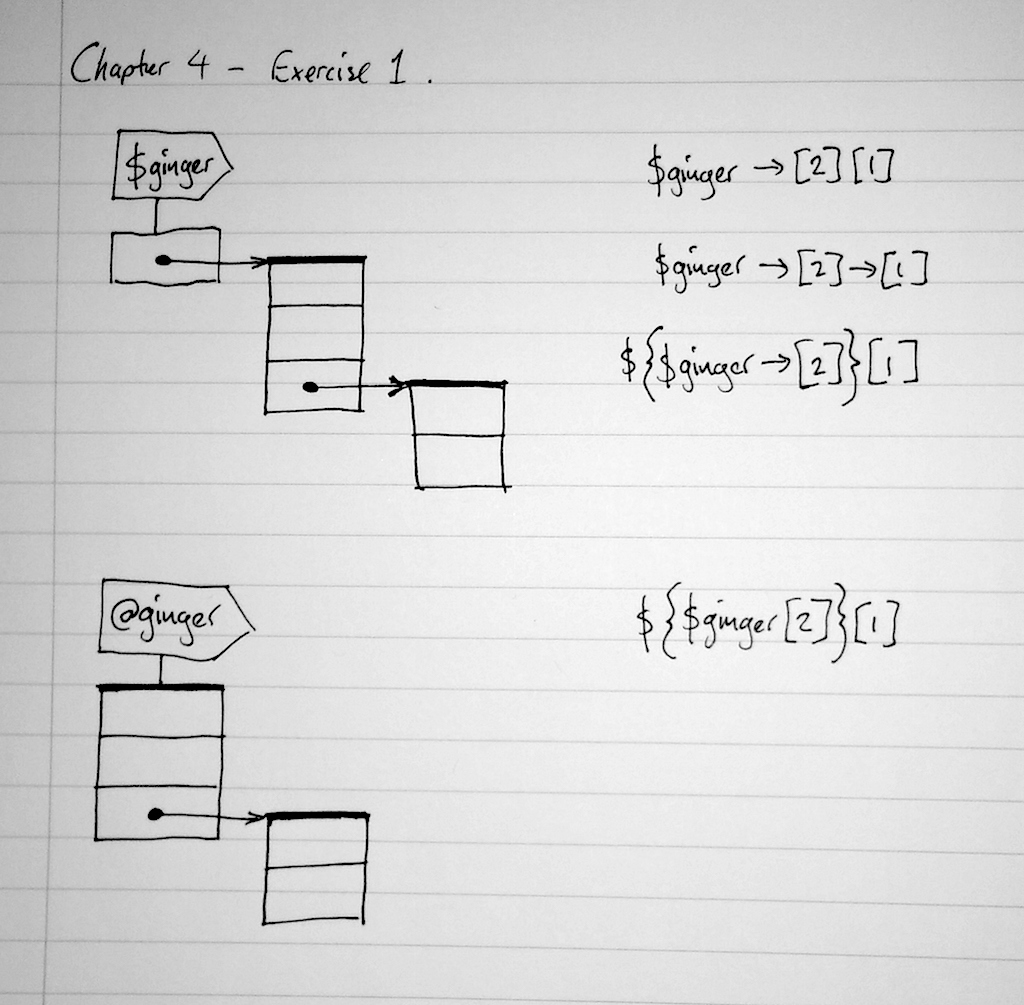 Chapter 4 - Exercise 1.
$ginger
$ginger→[2][1]
$ginger→[2]→[1]
${$ginger→[2]}[1]
@ginger
${$ginger[2]}[1]